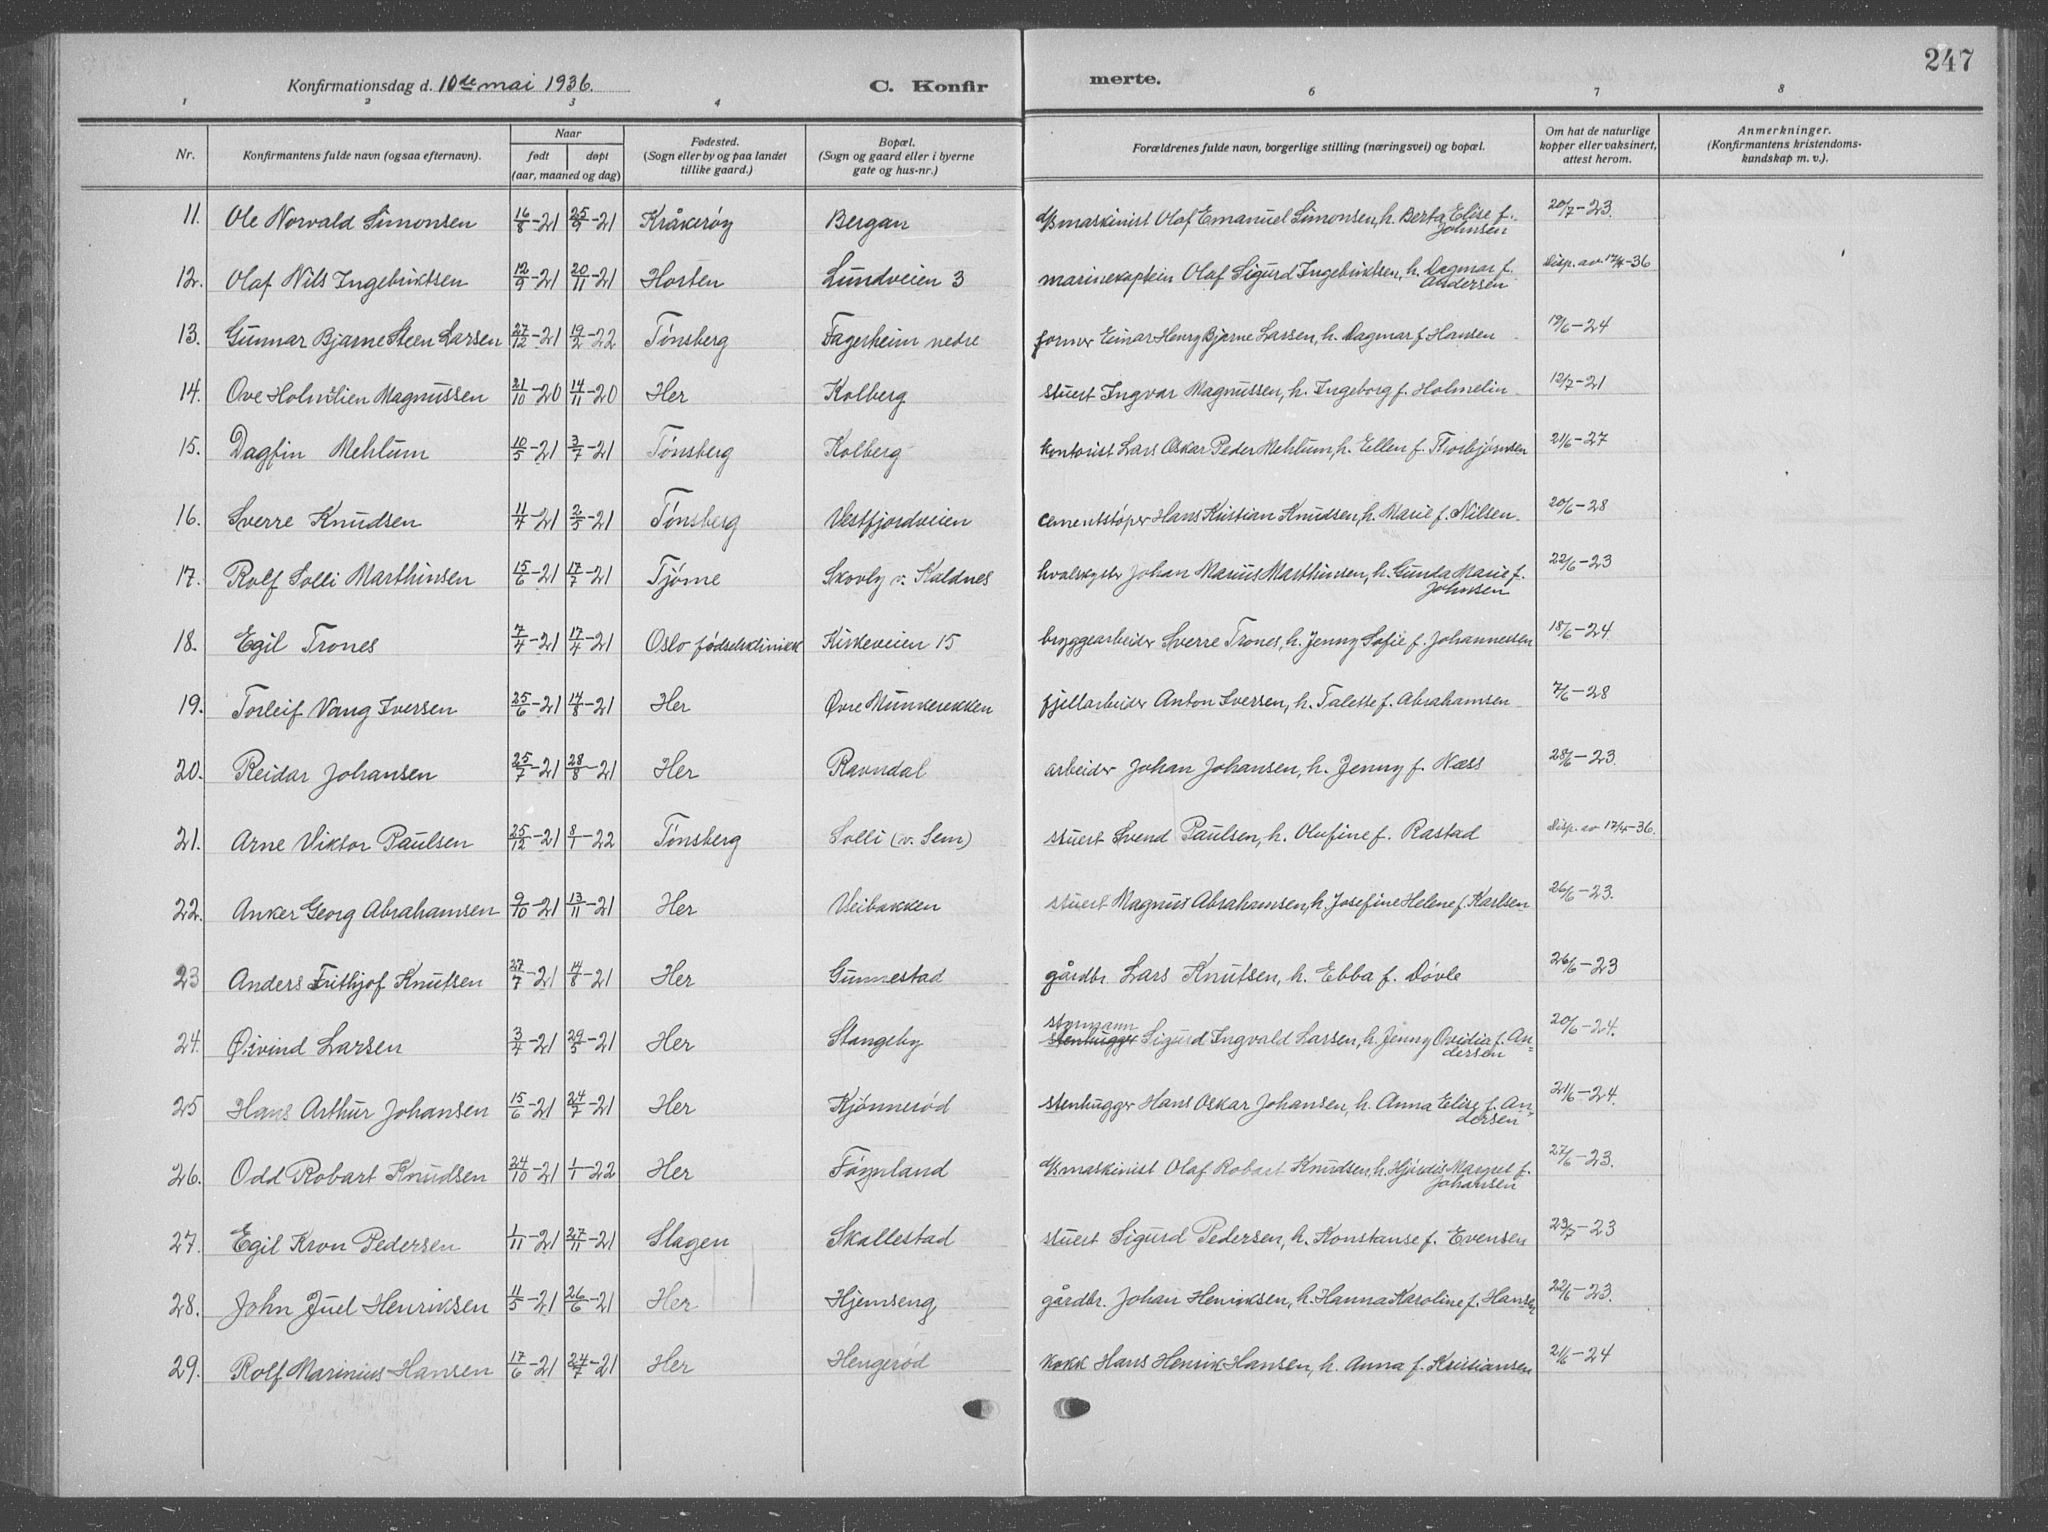 247
Konfirmationsdag d. 10de mai 1936.
C. Konfirmerte.
1 2 3 4 6 7 8
Nr. | Konfirmantens fulde navn (ogsaa efternavn). | Naar født | døpt (aar, maaned og dag) | Fødested. (Sogn eller by og paa landet tillike gaard.) | Bopæl. (Sogn og gaard eller i byerne gate og hus-nr.) | Forældrenes fulde navn, borgerlige stilling (næringsvei) og bopæl. | Om hat de naturlige kopper eller vaksinert, attest herom. | Anmerkninger. (Konfirmantens kristendomskundskap m. v.).
11. Ole Norvald Simonsen 16/8-21 25/9-21 Kråkerøy Bergan d/s maskinist Olaf Emanuel Simonsen, h. Berta Elise f. Johnsen 20/7-23.
12. Olaf Nils Ingebriktsen 12/9-21 20/11-21 Horten Lundveien 3 marinekaptein Olaf Sigurd Ingebriktsen, h. Dagmar f. Andersen Disp. av 17/4-36
13. Gunnar Bjarne Steen Larsen 27/12-21 19/2-22 Tønsberg Fagerheim nedre former Einar Henry Bjarne Larsen, h. Dagmar f. Hansen 19/6-24
14. Ove Holmelien Magnussen 21/10-20 14/11-20 Her Kolberg stuert Ingvar Magnussen, h. Ingeborg f. Holmelin 12/7-21
15. Dagfin Mehlum 10/5-21 3/7-21 Tønsberg Kolberg kontorist Lars Oskar Peder Mehlum, h. Ellen f. Thorbjørnsen 21/6-27
16. Sverre Knudsen 11/4-21 2/5-21 Tønsberg Vestfjordveien cementstøper Hans Kristian Knudsen, h. Marie f. Nilsen. 20/6-28
17. Rolf Solli Marthinsen 15/6-21 17/7-21 Tjøme Skovly v. Kaldnes hvalskytter Johan Marius Marthinsen, h. Gunda Marie f. Johnsen 22/6-23
18. Egil Trones 7/4-21 17/4-21 Oslo fødselsklinikk Kirkeveien 15 bryggearbeider Sverre Trones, h. Jenny Sofie f. Johannessen 18/6-24.
19. Torleif Vang Iversen 25/6-21 14/8-21 Her Øvre Munkerekken fjellarbeider Anton Iversen, h. Talette f. Abrahamsen 7/6-28
20. Reidar Johansen 25/7-21 28/8-21 Her Ravndal arbeider Johan Johansen, h. Jenny f. Næss 28/6-23.
21. Arne Viktor Paulsen 25/12-21 8/1-22 Tønsberg Solli (v. Sem) stuert Svend Paulsen, h. Olufine f. Rastad Disp. av 17/4-36.
22. Anker Georg Abrahamsen 9/10-21 13/11-21 Her Veibakken stuert Magnus Abrahamsen, h. Josefine Helene f. Karlsen 26/6-23.
23 Anders Frithjof Knutsen 27/7-21 14/8-21 Her Gunnestad gårdbr. Lars Knutsen, h. Ebba f. Døvle 26/6-23
24. Øivind Larsen 3/4-21 29/5-21 Her Stangeby styrmann stenhugger Sigurd Ingvald Larsen, h. Jenny Ovidia f. Andersen 20/6-24.
25 Hans Arthur Johansen 15/6-21 24/7-21 Her Kjønnerød stenhugger Hans Oskar Johansen, h. Anna Elise f. Andersen 21/6-24.
26. Odd Robart Knudsen 24/10-21 1/1-22 Her Føynland d/s maskinist Olaf Robart Knudsen, h. Hjørdis Margret f. Johansen 27/6-23.
27. Egil Kron Pedersen 1/11-21 27/11-21 Slagen Skallestad stuert Sigurd Pedersen, h. Konstanse f. Evensen 23/7-23
28. John Juel Henriksen 11/5-21 26/6-21 Her Hjemseng gårdbr. Johan Henriksen, h. Hanna Karoline f. Hansen 22/6-23.
29. Rolf Marinius Hansen 17/6-21 24/7-21 Her Hengerød kokk Hans Henrik Hansen, h. Anna f. Kristiansen 21/6-24